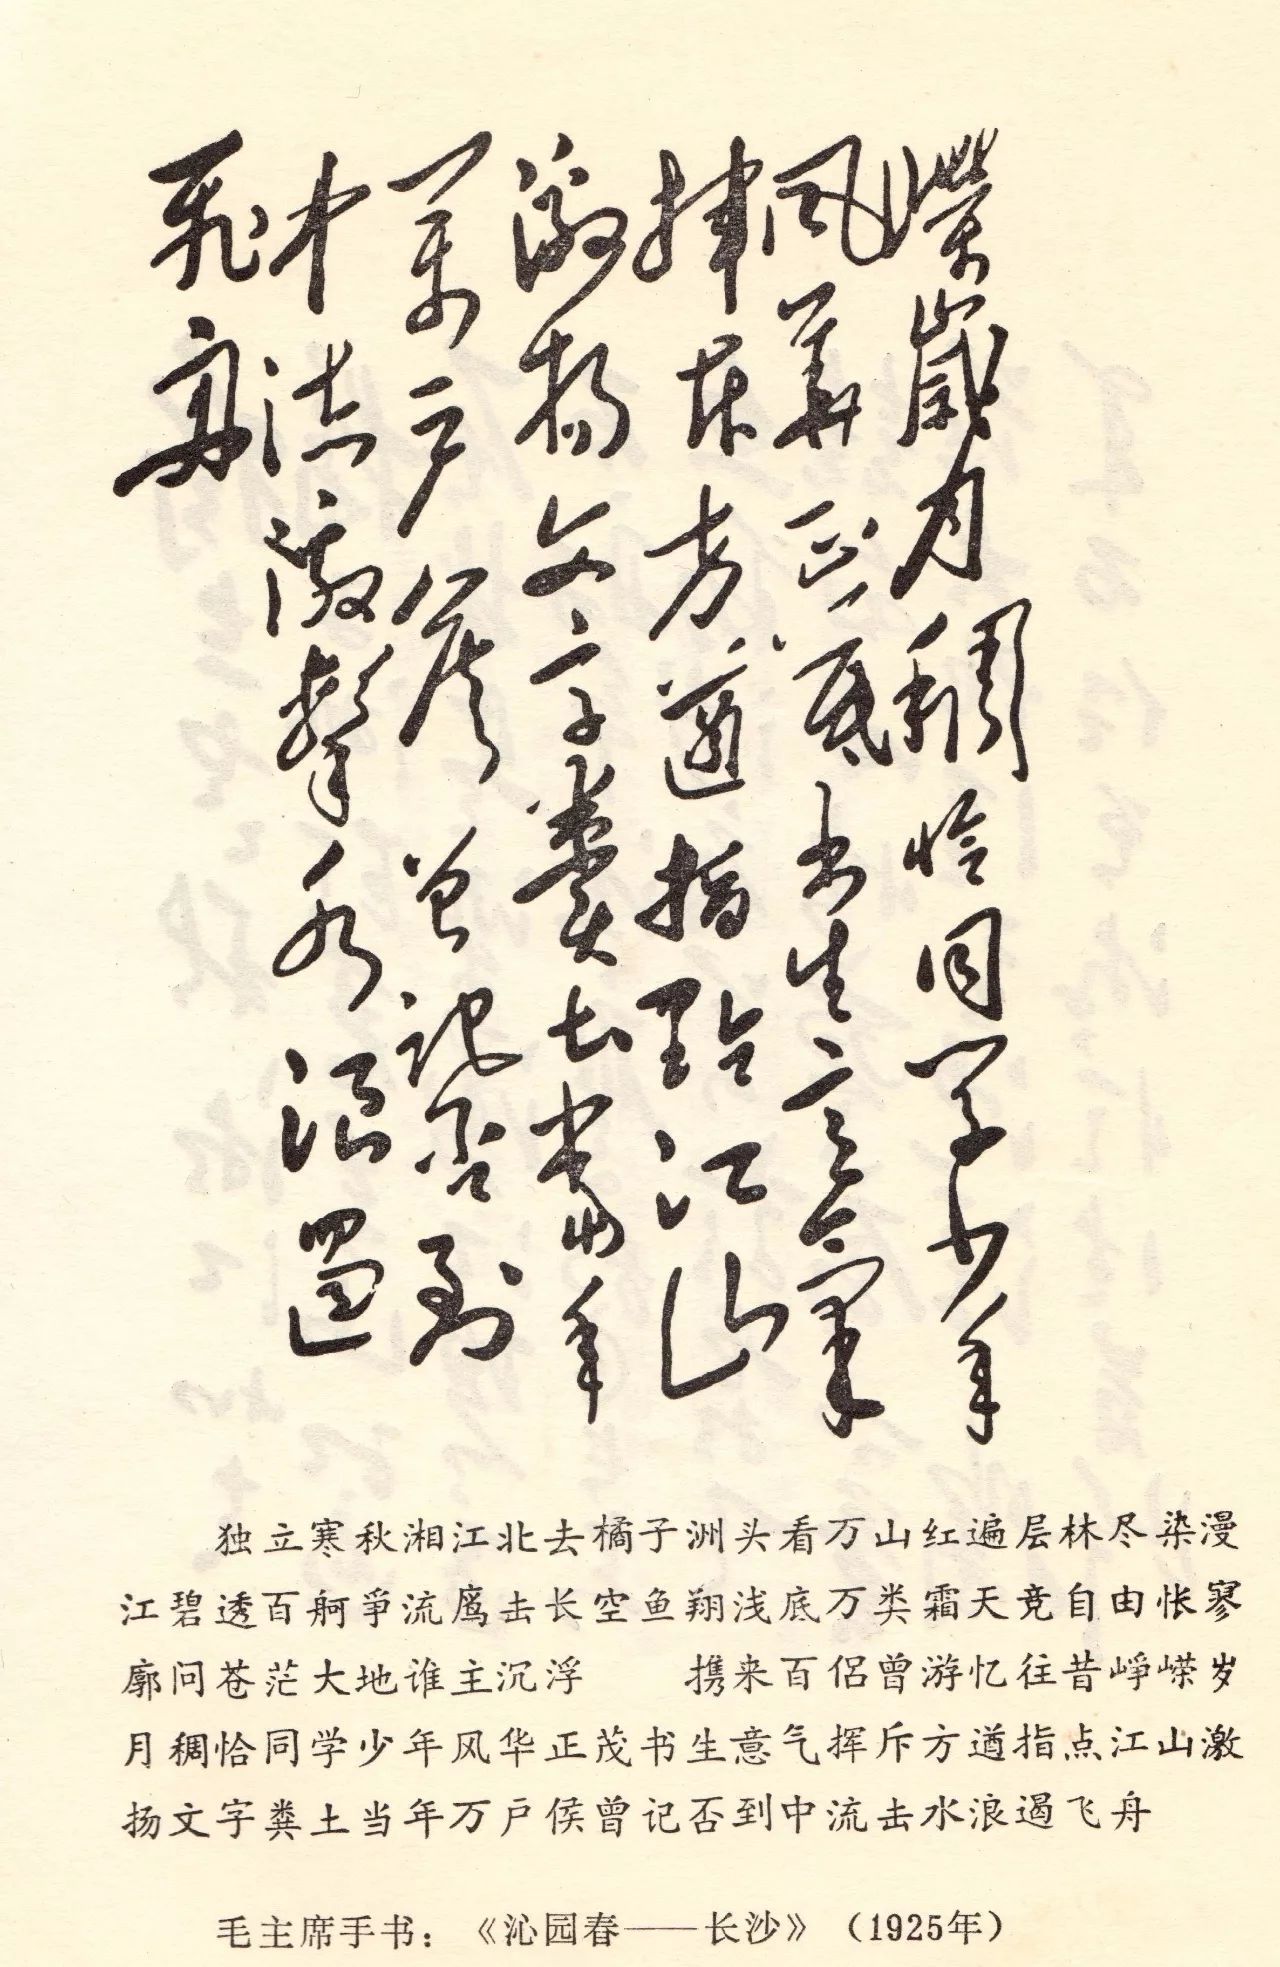 嶸歲月稠恰同学少年
风華正茂书生意氣
挥斥方遒指點江山
激揚文字糞土當年
萬户侯曾記否到
中流激擊水浪遏
飛舟
独立寒秋湘江北去橘子洲头看万山红遍层林尽染漫
江碧透百舸争流鹰击长空鱼翔浅底万类霜天竞自由怅寥
廓问苍茫大地谁主沉浮　　携来百侣曾游忆往昔峥嵘岁
月稠恰同学少年风华正茂书生意气挥斥方遒指点江山激
扬文字粪土当年万户侯曾记否到中流击水浪遏飞舟
毛主席手书：《沁园春——长沙》（1925年）